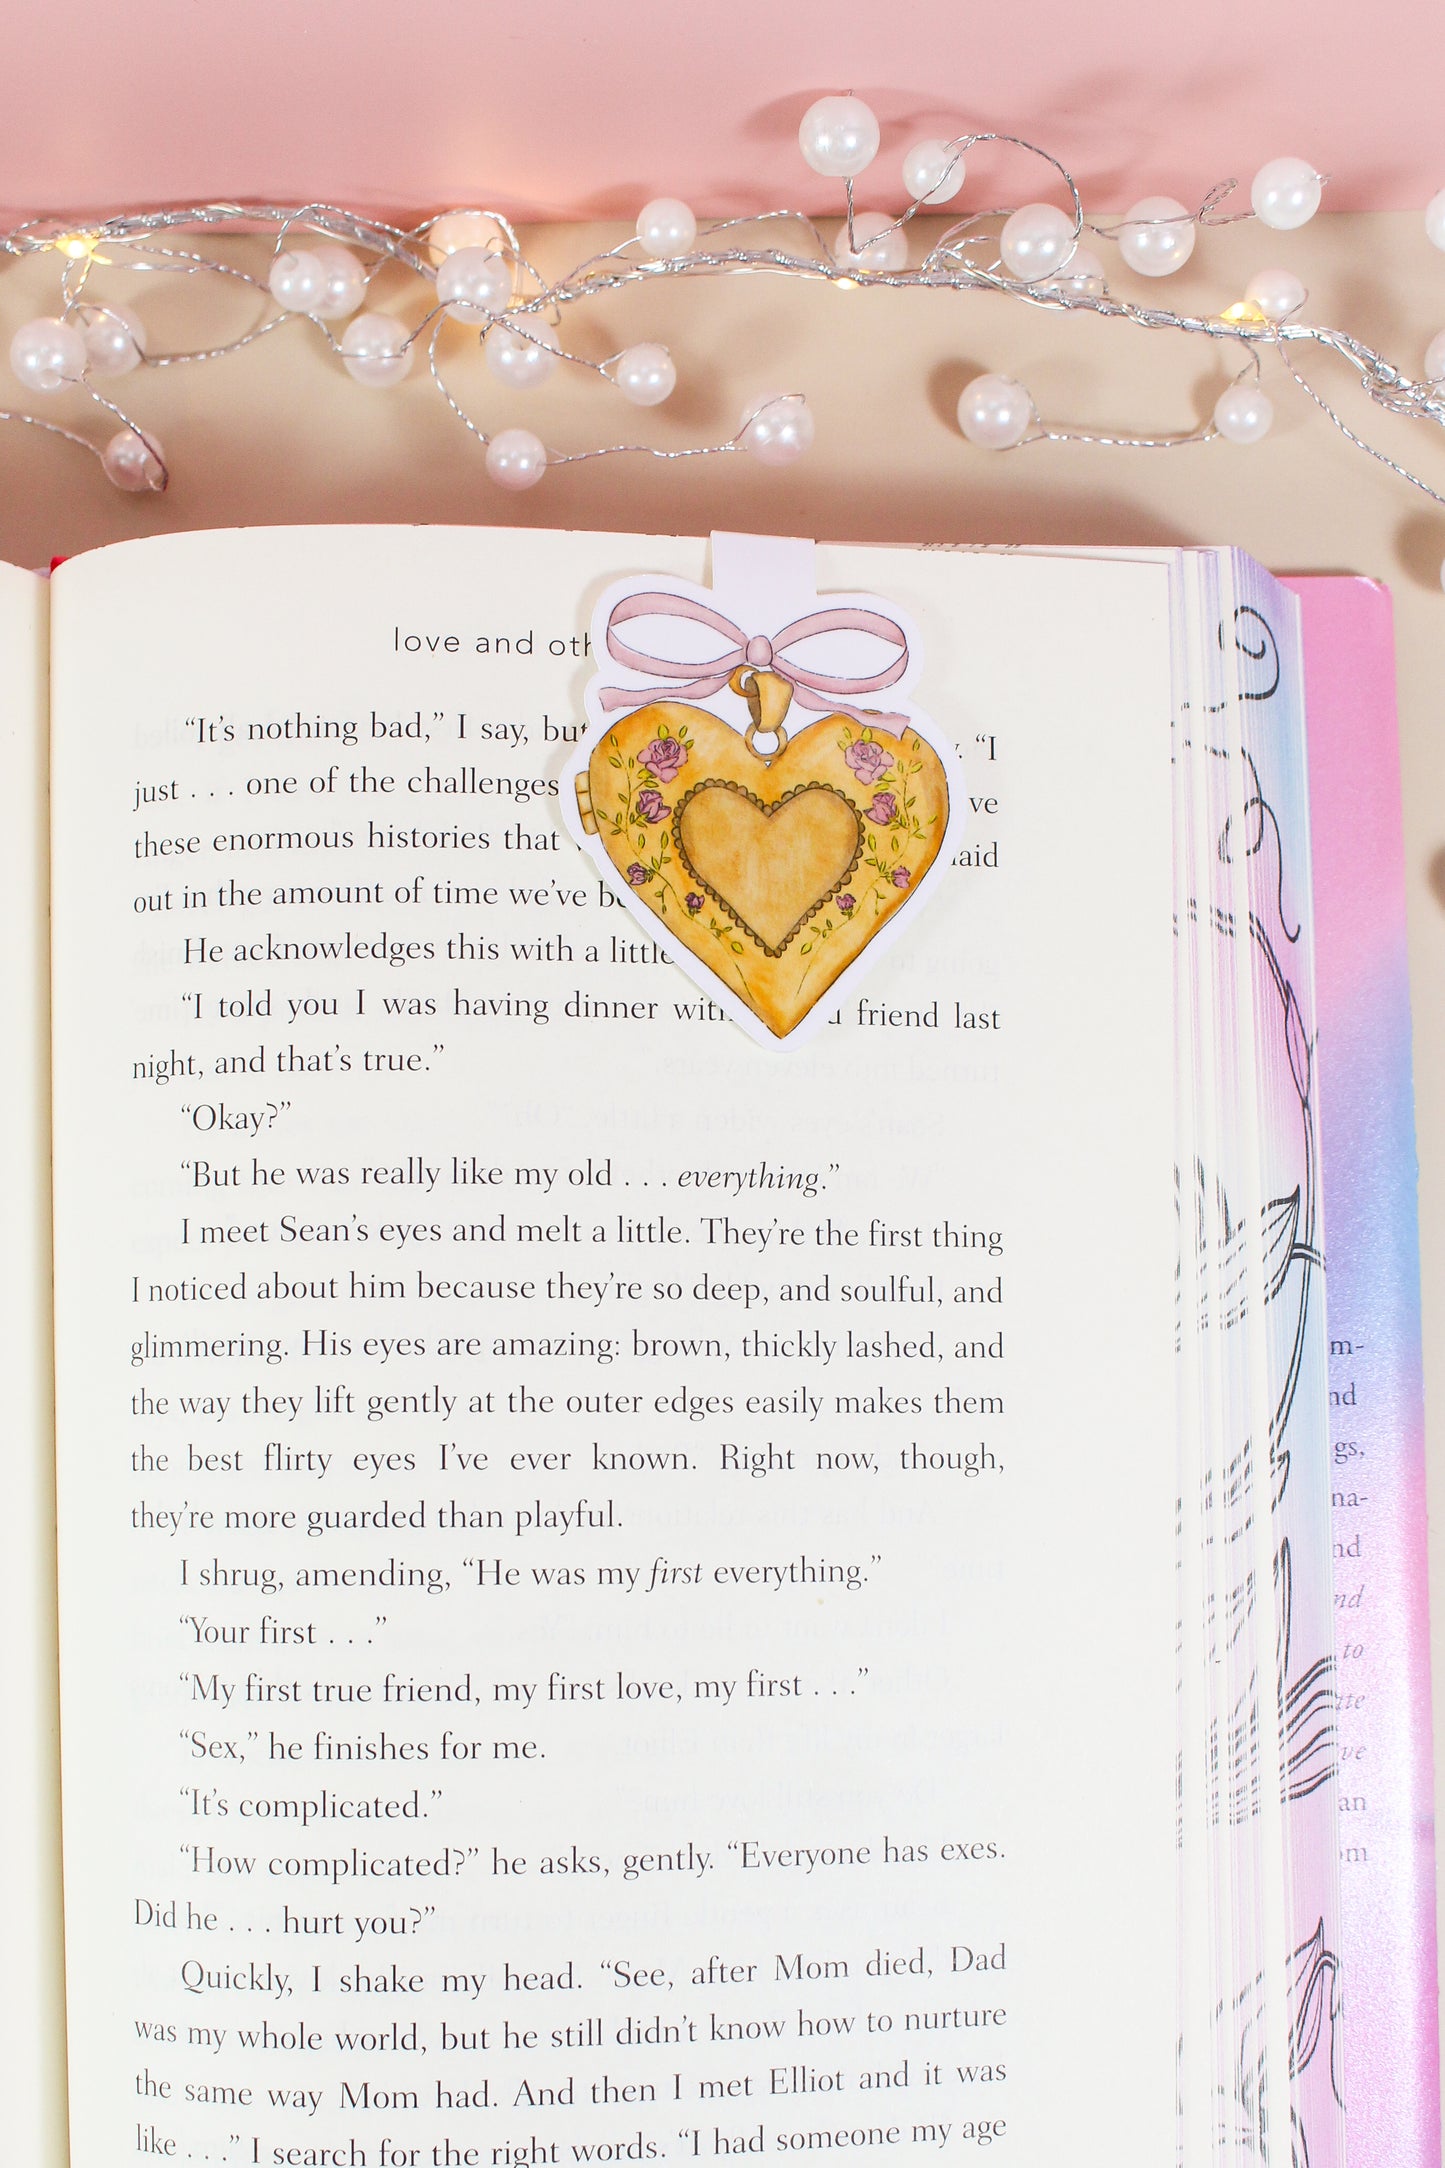 love and oth
“It’s nothing bad,” I say, but . “I
just . . . one of the challenges ve
these enormous histories that aid
out in the amount of time we’ve b
He acknowledges this with a little
“I told you I was having dinner with friend last
night, and that’s true.”
“Okay?”
“But he was really like my old . . . everything.”
I meet Sean’s eyes and melt a little. They’re the first thing
I noticed about him because they’re so deep, and soulful, and
glimmering. His eyes are amazing: brown, thickly lashed, and
the way they lift gently at the outer edges easily makes them
the best flirty eyes I’ve ever known. Right now, though,
they’re more guarded than playful.
I shrug, amending, “He was my first everything.”
“Your first . . .”
“My first true friend, my first love, my first . . .”
“Sex,” he finishes for me.
“It’s complicated.”
“How complicated?” he asks, gently. “Everyone has exes.
Did he . . . hurt you?”
Quickly, I shake my head. “See, after Mom died, Dad
was my whole world, but he still didn’t know how to nurture
the same way Mom had. And then I met Elliot and it was
like . . .” I search for the right words. “I had someone my age
m-
nd
gs,
na-
nd
nd
to
ate
ve
an
om